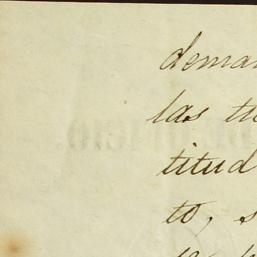 deman
las th
titud
to, s